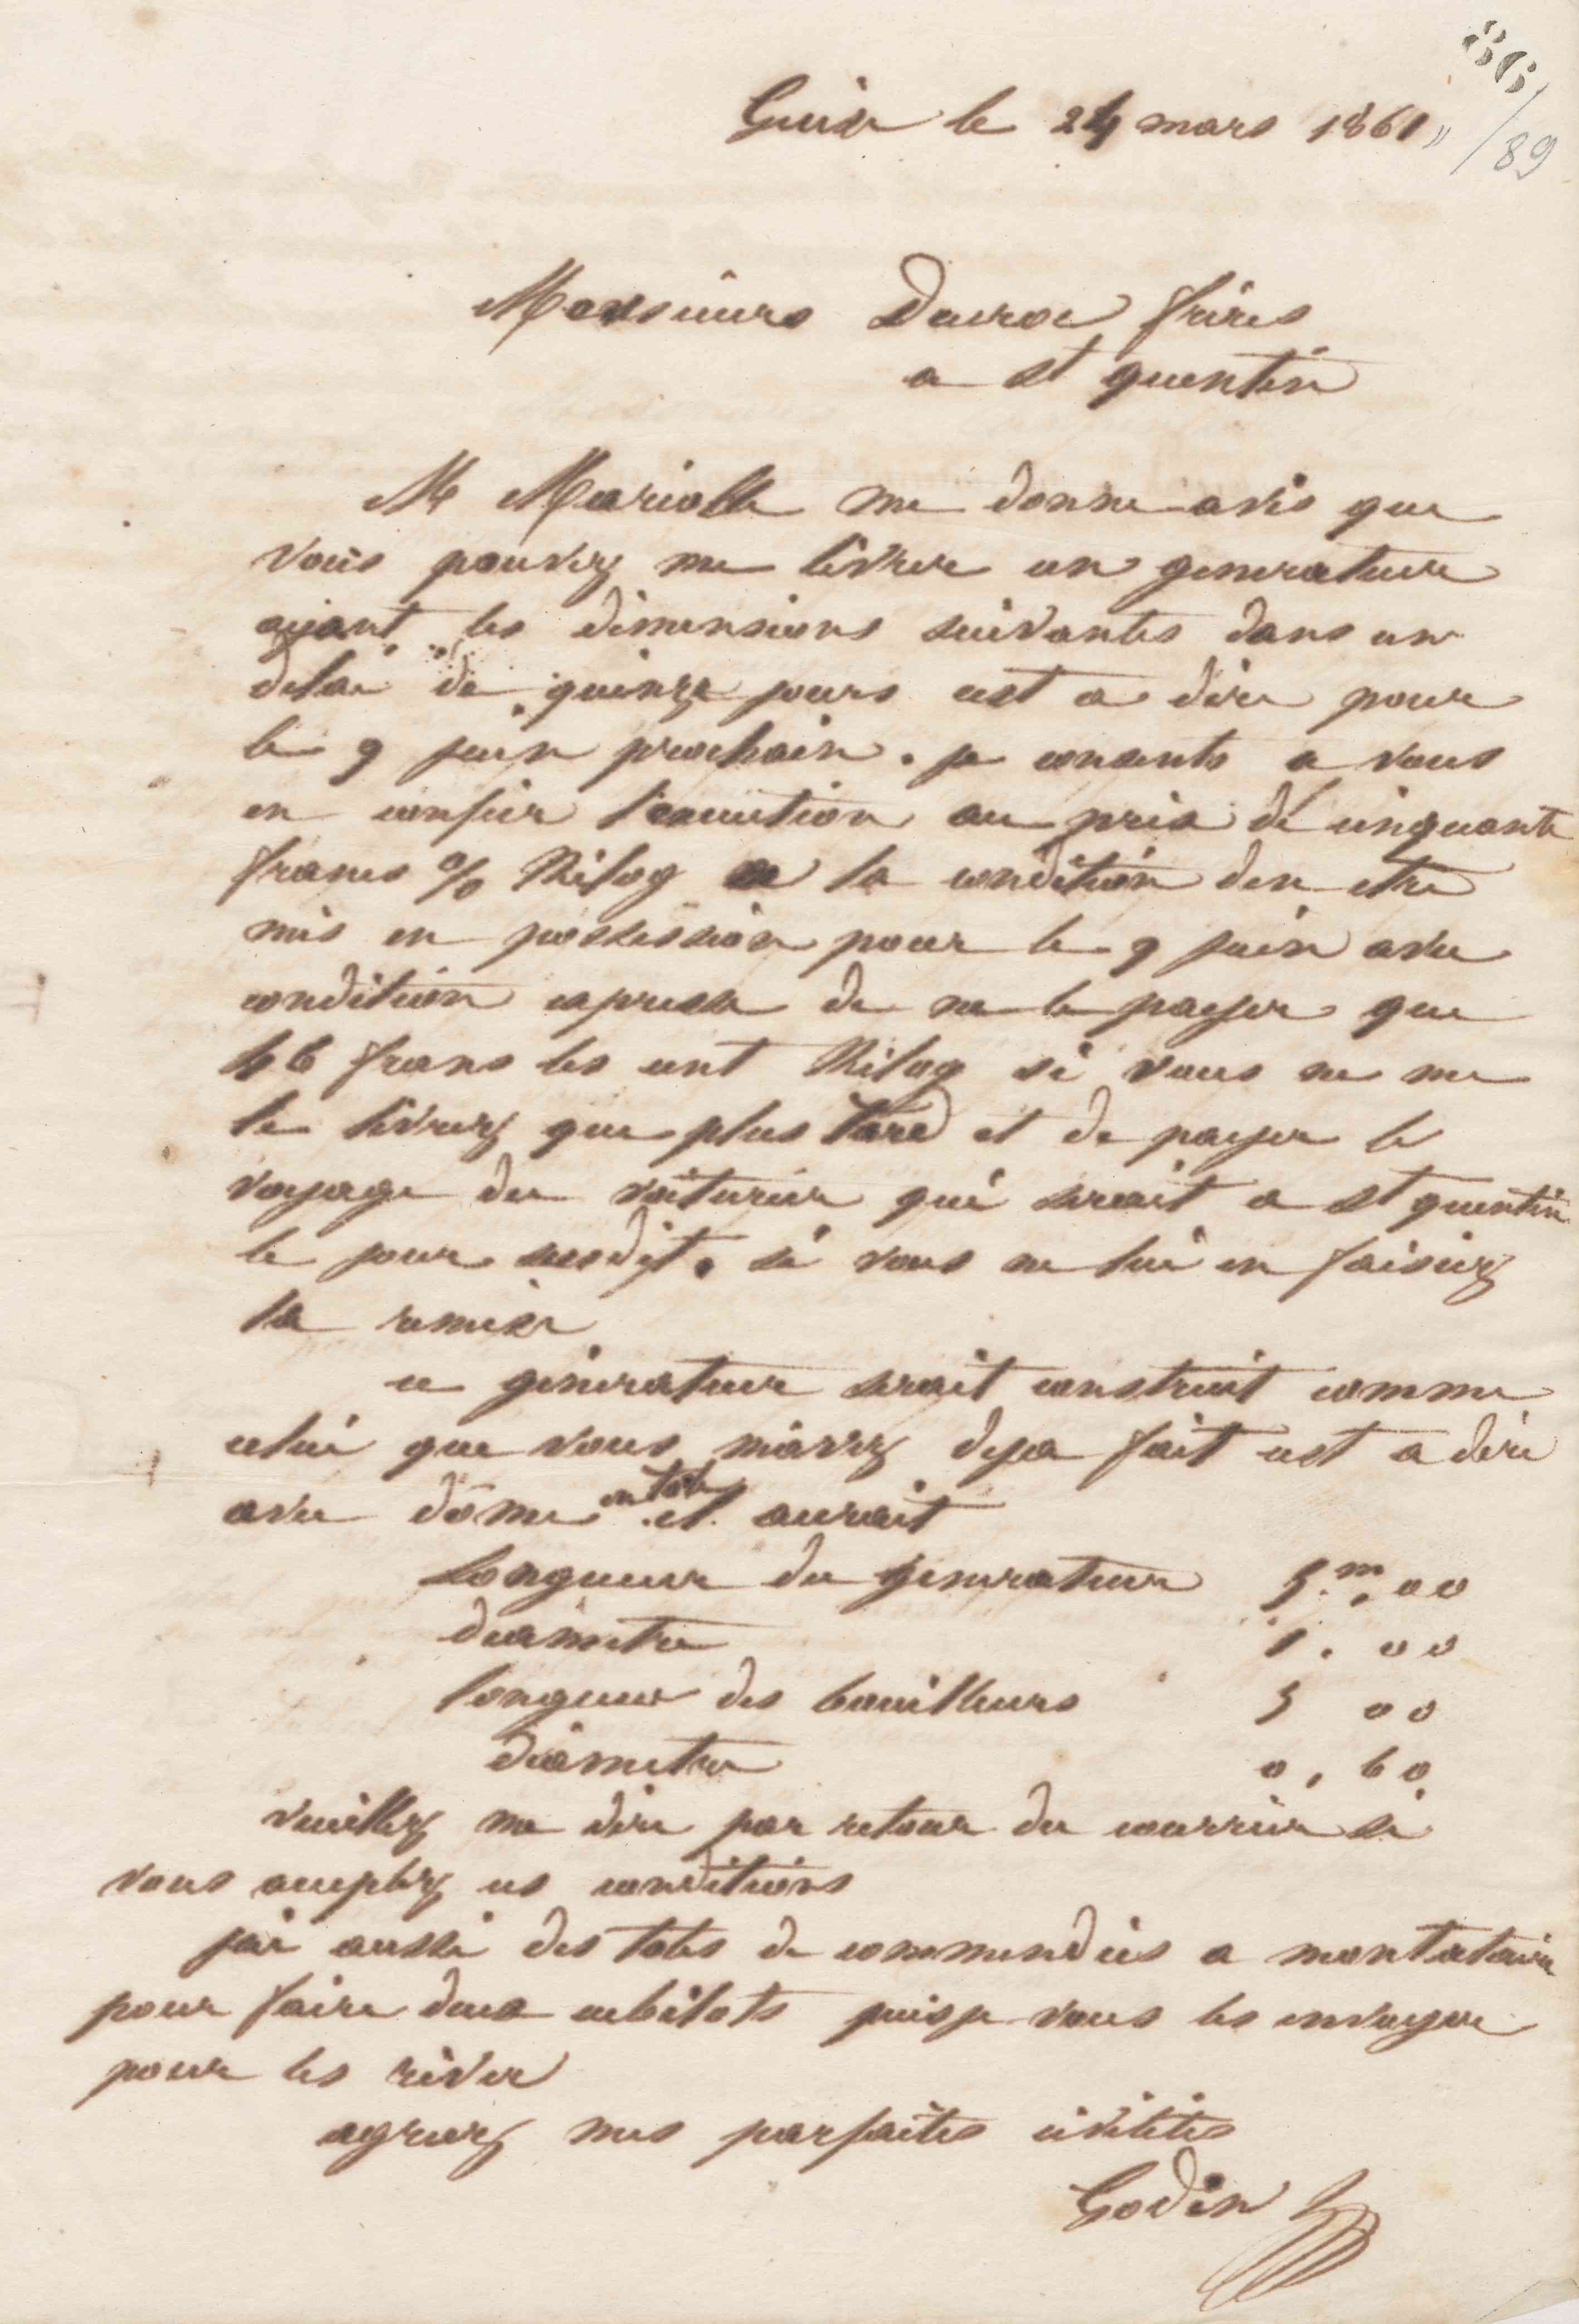 86/89
Guise le 24 mars 1861
Messieurs Ducroc frères
a St quentin
Mr Mariolle me donne avis que
vous pouvez me livrer un generateur
ayant les dimensions suivantes dans un
delai de quinze jours cest a dire pour
le 9 juin prochain. je consents a vous
en confier l'execution au prix de cinquante
francs % Kilog a la condition den etre
mis en possession pour le 9 juin avec
condition expresse de ne le payer que
46 frans les cent Kilog si vous ne me
le livrez que plus tard et de payer le
voyage du voiturier qui serait a St quentin
le jour susdit. si vous ne lui en faisiez
la remise
ce générateur serait construit comme
celui que vous mavez deja fait cest a dire
avec dôme en tole et aurait
Longueur du generateur 5.m,00
diametre 1.00
longueur des bouilleurs 5 00
diametre 0,60
veuillez me dire par retour du courrier si
vous acceptez ces conditions
jai aussi des toles de commendées a montataire
pour faire deux cubilots puisje vous les envoyer
pour les river
agreez mes parfaites civilités
Godin